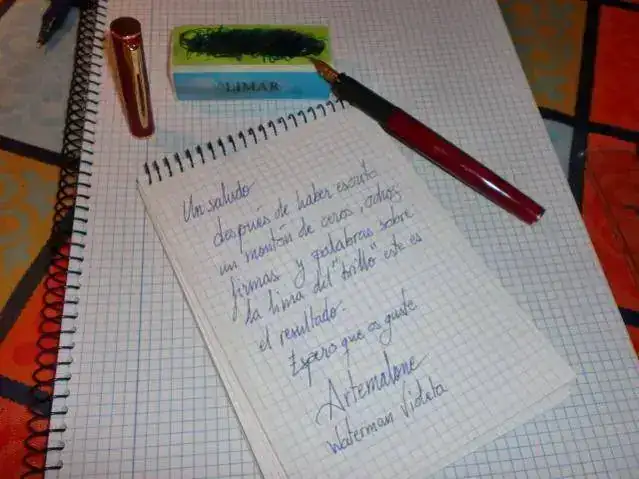 LIMAR
Un saludo
después de haber escrito
un montón de ceros, ochos
firmas y palabras sobre
la lima del "brillo" este es
el resultado.
Espero que os guste
Artemalone
Waterman Violeta